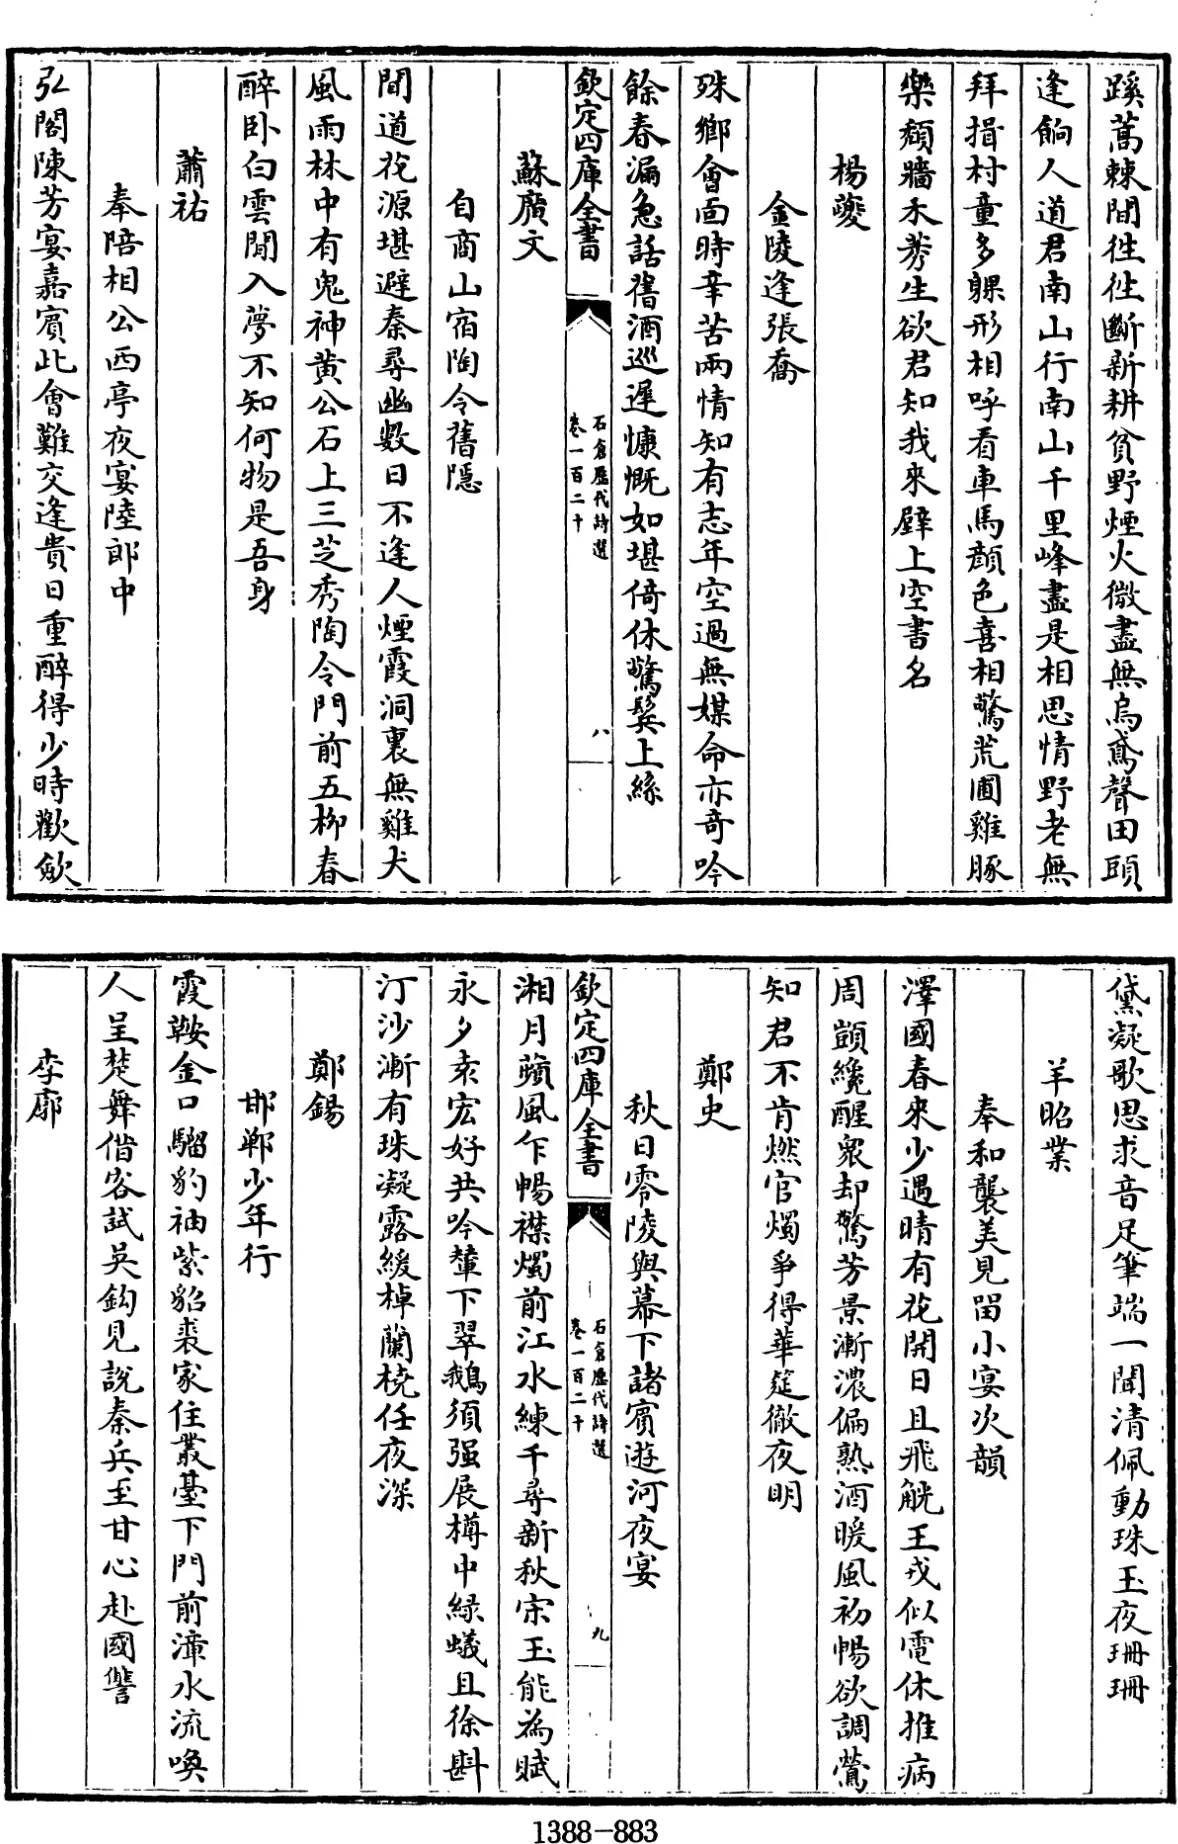 蹊蒿棘間徃徃斷新耕貧野煙火微晝無烏鳶聲田頭
逢餉人道君南山行南山千里峰盡是相思情野老無
拜揖村童多躶形相呼看車馬顔色喜相驚荒圃雞豚
樂頽牆禾莠生欲君知我來壁上空書名
楊夔
金陵逢張喬
殊鄉會面時辛苦兩情知有志年空過無媒命亦奇吟
餘春漏急話舊酒巡遲慷慨如堪倚休驚鬂上絲
欽定四庫全書
石倉歷代詩選
卷一百二十
八
蘇廣文
自商山宿陶令舊隠
聞道花源堪避秦尋幽數日不逢人煙霞洞裏無雞犬
風雨林中有鬼神黄公石上三芝秀陶令門前五柳春
醉卧白雲閒入夢不知何物是吾身
蕭祐
奉陪相公西亭夜宴陸郎中
弘閣陳芳宴嘉賓此會難交逢貴日重醉得少時歡歛
黛凝歌思求音足筆端一聞清佩動珠玉夜珊珊
羊昭業
奉和襲美見留小宴次韻
澤國春來少遇晴有花開日且飛觥王戎似電休推病
周顗纔醒衆却驚芳景漸濃偏熟酒暖風初暢欲調鶯
知君不肯燃官燭爭得華筵徹夜明
鄭史
秋日零陵與幕下諸賓遊河夜宴
欽定四庫全書
石倉歷代詩選
卷一百二十
九
湘月蘋風乍暢襟燭前江水練千尋新秋宗玉能為賦
永夕袁宏好共吟輦下翠鵝須强展樽中緑蟻且徐斟
汀沙漸有珠凝露緩棹蘭橈任夜深
鄭鍚
邯鄲少年行
霞鞍金口騮豹袖紫貂裘家住叢臺下門前漳水流喚
人呈楚舞偕客試吳鈎見說秦兵至甘心赴國讐
李廓
1388-883